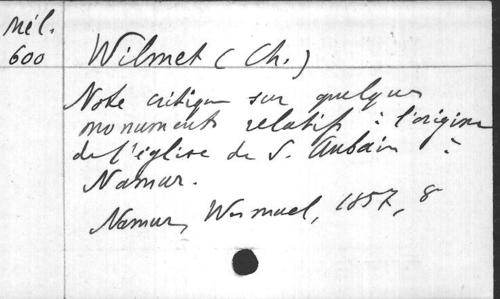 Mél.
600
Wilmet (Ch.)
Note critique sur quelques
monuments relatifs à l'origine
de l'église de S. Aubain à
Namur.
Namur, Wesmael, 1857, 8